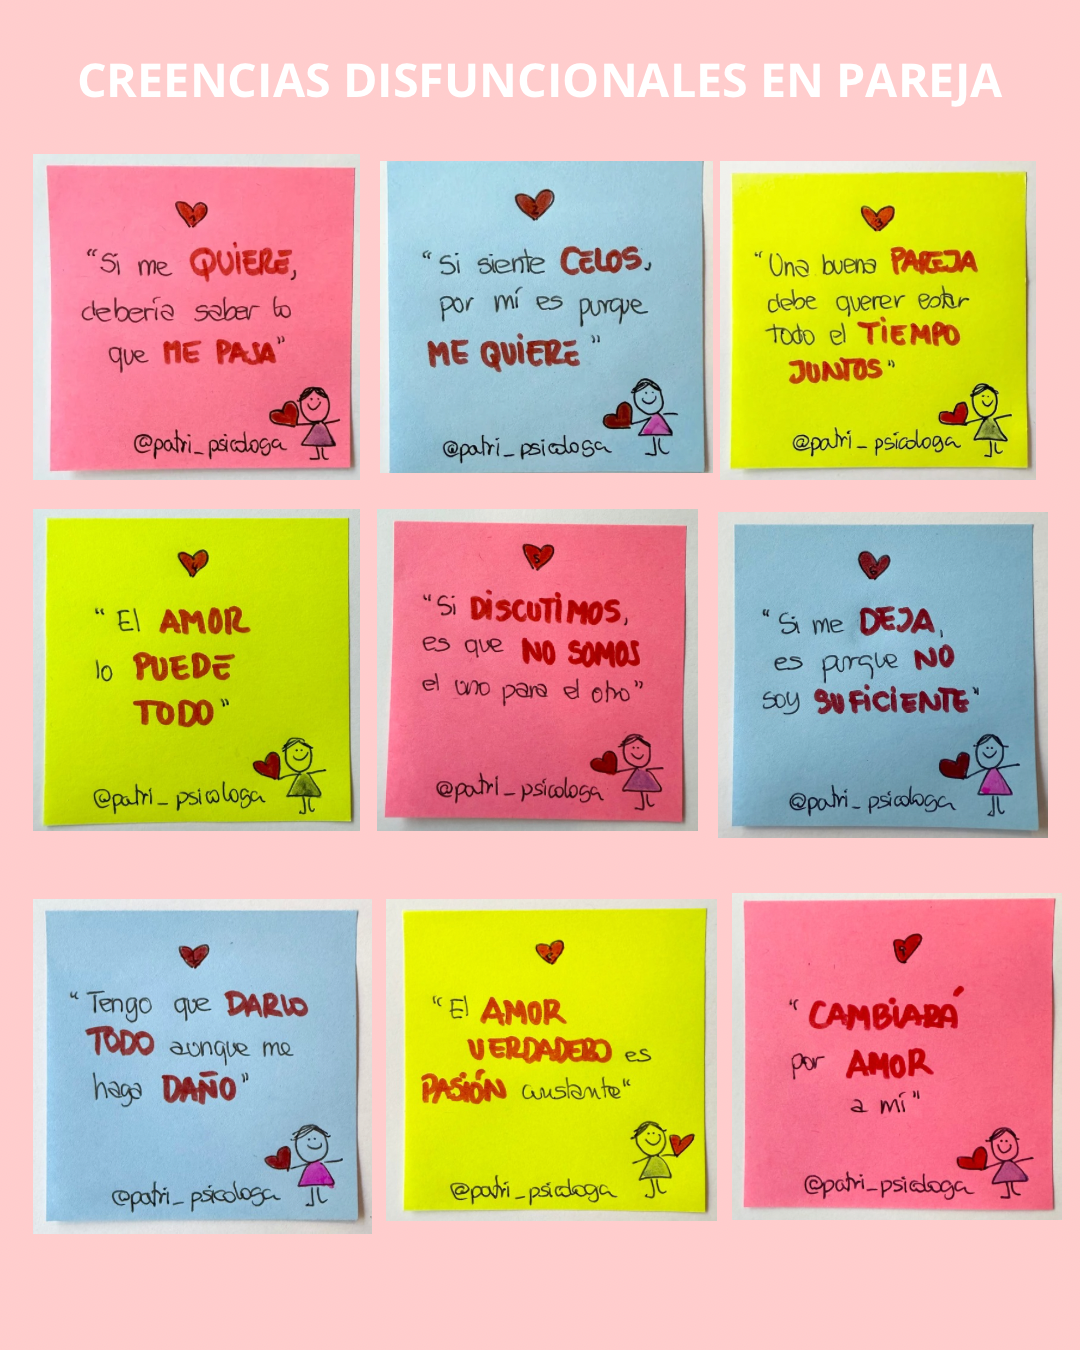 CREENCIAS DISFUNCIONALES EN PAREJA
1
"Si me QUIERE,
debería saber lo
que ME PASA"
@patri_psicologa
2
"Si siente CELOS,
por mí es porque
ME QUIERE"
@patri_psicologa
3
"Una buena PAREJA
debe querer estar
todo el TIEMPO
JUNTOS"
@patri_psicologa
4
"El AMOR
lo PUEDE
TODO"
@patri_psicologa
5
"Si DISCUTIMOS,
es que NO SOMOS
el uno para el otro"
@patri_psicologa
6
"Si me DEJA,
es porque NO
soy SUFICIENTE"
@patri_psicologa
"Tengo que DARLO
TODO aunque me
haga DAÑO"
@patri_psicologa
"El AMOR
VERDADERO es
PASIÓN constante"
@patri_psicologa
"CAMBIARÁ
por AMOR
a mí"
@patri_psicologa